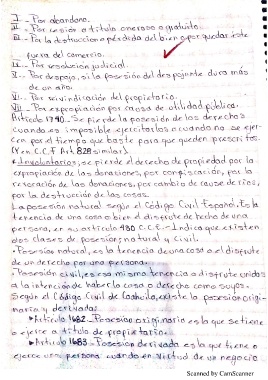 I.- Por abandono.
II.- Por cesión a título oneroso o gratuito.
III.- Por la destrucción o pérdida del bien o por quedar éste
fuera del comercio.
IV.- Por resolución judicial.
V.- Por despojo, si la posesión del despojante dura más
de un año.
VI.- Por reivindicación del propietario.
VII.- Por expropiación por causa de utilidad pública.
Artículo 1790.- Se pierde la posesión de los derechos
cuando es imposible ejercitarlos o cuando no se ejer-
cen por el tiempo que baste para que queden prescritos.
(Y en C.C.F Art. 829 similar).
Involuntarios, se pierde el derecho de propiedad por la
expropiación de las donaciones, por confiscación, por la
revocación de las donaciones, por cambio de cauce de ríos,
por la destrucción de las cosas.
La posesión natural según el Código Civil Español, Es la
tenencia de una cosa o bien el disfrute de hecho de una
persona, en su artículo 430 C.C.E - Indica que existen
dos clases de posesión: natural y civil.
Posesión natural, es la tenencia de una cosa o el disfrute
de un derecho por una persona.
Posesión civil, es esa misma tenencia o disfrute unidos
a la intención de haber la cosa o derecho como suyos.
Según el Código Civil de Coahuila, existe la posesión origi-
naria y derivada.
Artículo 1682.- Posesión originaria es la que se tiene
o ejerce a título de propietario.
Artículo 1683.- Posesión derivada es la que tiene o
ejerce una persona cuando en virtud de un negocio
Scanned by CamScanner